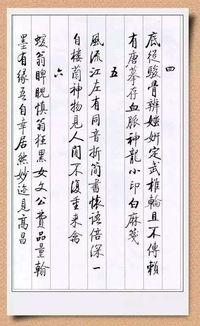 四
底從駿骨辨媸妍定武椎輪且不傳賴
有唐摹存血脈神龍小印白麻箋
五
風流江左有同音折簡書懷語倍深一
自樓蘭神物見人間不復重來禽
六
蝯翁睥睨慎翁狂黑女文公費品量翰
墨有緣吾自幸居然妙迹見高昌